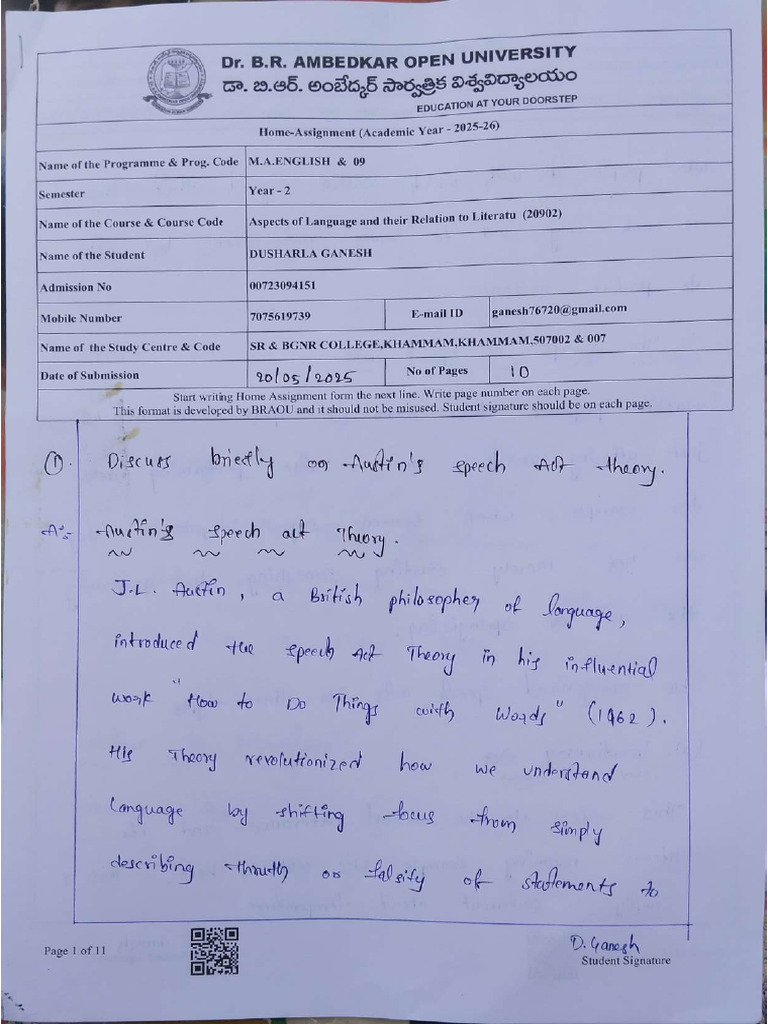 Dr. B.R. AMBEDKAR OPEN UNIVERSITY
డా. బి.ఆర్. అంబేద్కర్ సార్వత్రిక విశ్వవిద్యాలయం
EDUCATION AT YOUR DOORSTEP
Home-Assignment (Academic Year - 2025-26)
Name of the Programme & Prog. Code M.A.ENGLISH & 09
Semester Year - 2
Name of the Course & Course Code Aspects of Language and their Relation to Literatu (20902)
Name of the Student DUSHARLA GANESH
Admission No 00723094151
Mobile Number 7075619739 E-mail ID ganesh76720@gmail.com
Name of the Study Centre & Code SR & BGNR COLLEGE,KHAMMAM,KHAMMAM,507002 & 007
Date of Submission 20/05/2025 No of Pages 10
Start writing Home Assignment form the next line. Write page number on each page.
This format is developed by BRAOU and it should not be misused. Student signature should be on each page.
①. Discuss briefly on Austin's speech Act theory.
A:- Austin's speech act Theory.
J.L. Austin, a British philosopher of language,
introduced the speech Act Theory in his influential
work "How to Do Things with Words" (1962).
His Theory revolutionized how we understand
language by shifting focus from simply
describing thruth or falsify of statements to
Page 1 of 11
D. Ganesh
Student Signature